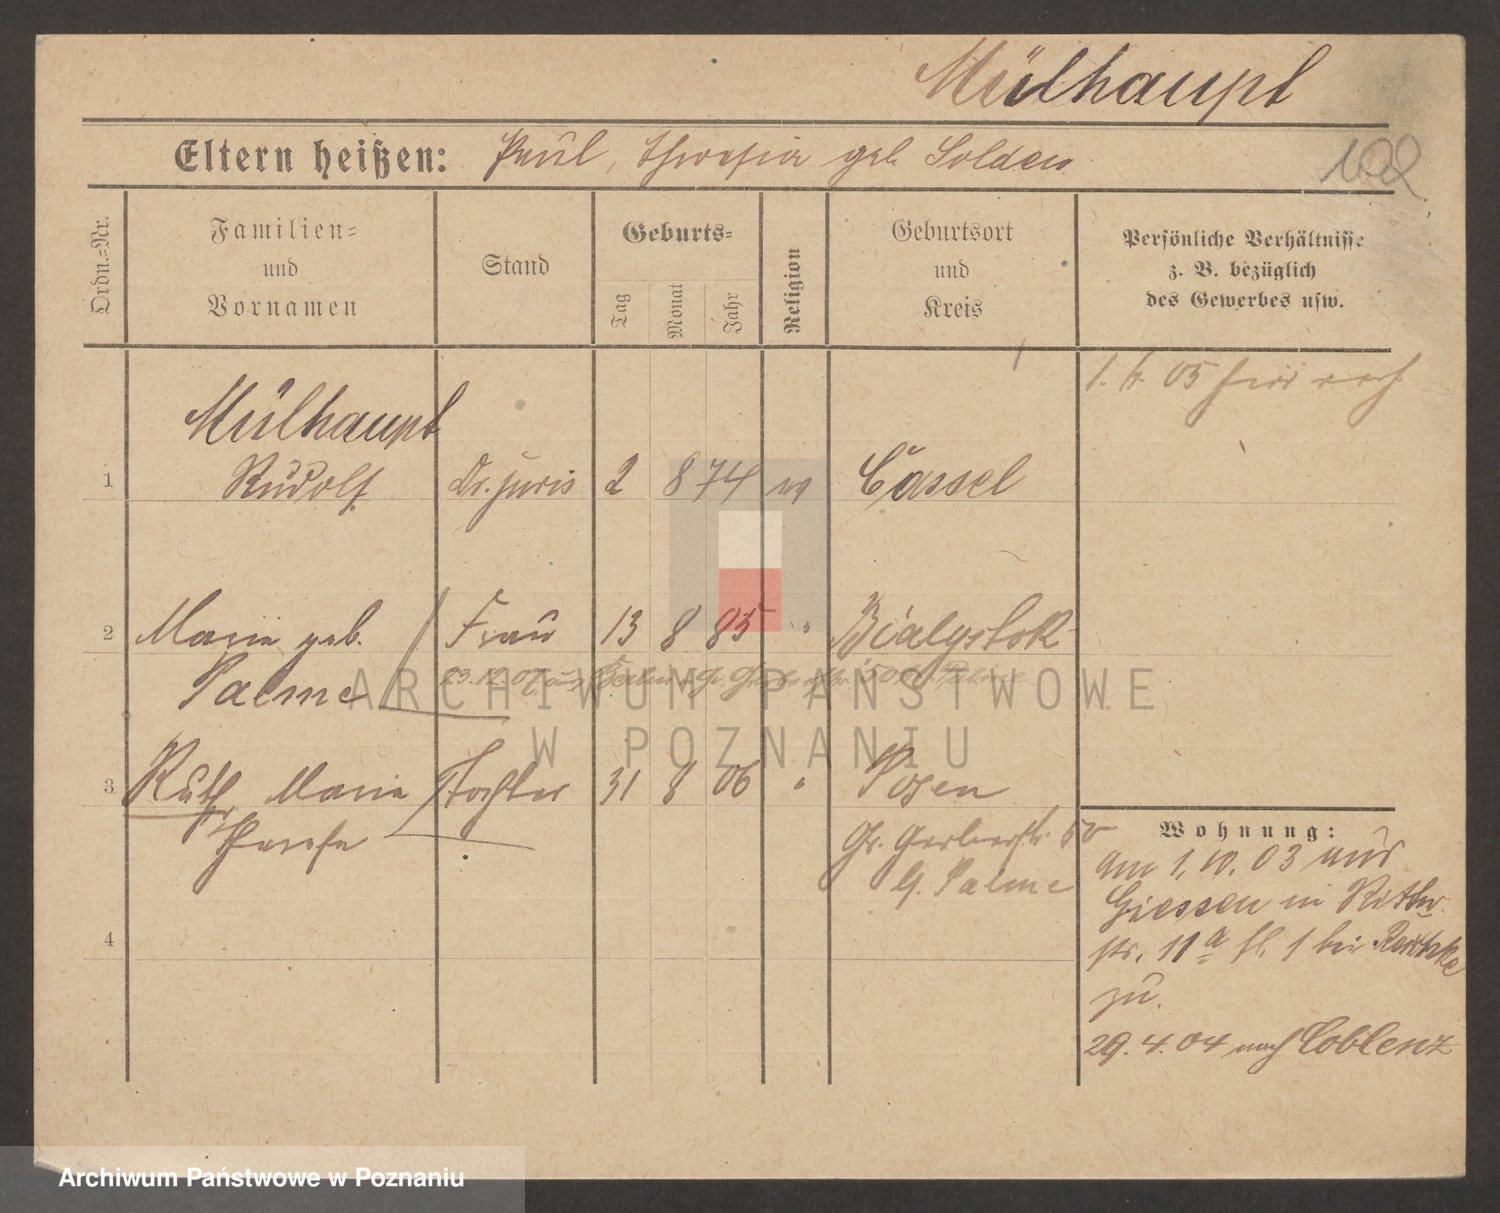 Mülhaupt
Eltern heißen: Paul, Theresia geb. Solden
102
Ordn.-Nr.
Familien-
und
Vornamen
Stand
Geburts-
Tag
Monat
Jahr
Religion
Geburtsort
und
Kreis
Persönliche Verhältnisse
z. B. bezüglich
des Gewerbes usw.
1. 6. 05
Mülhaupt
1 Rudolf Dr. juris 2 8 74 Cassel
2 Marie geb. Frau 13 8 85 " Bialystok
Palme
23.12.07 aus Berlin Gr. Palme
3 Ruth Marie Tochter 31 8 06 " Posen
Therese
Gr. Gerberstr. 50
G. Palme
4
Wohnung:
am 1. 10. 03 aus
Giessen in Ritter
str. 11a bei
zu.
29. 4. 04 nach Coblenz
ARCHIWUM PAŃSTWOWE
W POZNANIU
Archiwum Państwowe w Poznaniu